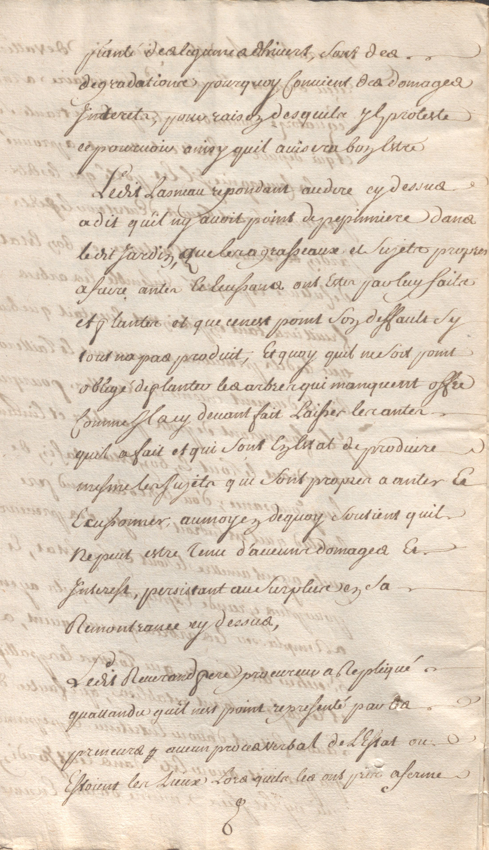 plante des legumes d'hivert, sont des
degradations pourquoy Convient des domages
Interets, pour raison desquels yl proteste
et pourvoir ainsy quil avisera bon Estre
Ledit Lasneau repondant au dere cy dessus
a dit quil ny avoit point de pepinniere dans
ledit Jardin, que les agrasseaux et sujets propres
a faire anter Ecussans ont Estez par luy faits
et planter et que cenest point son deffault sy
tout na pas produit, Et quoy quil ne soit point
oblege de planter les arbres qui manquent offre
Comme Il a cy devant fait Laisser les anter
quil a fait et qui sont En Estat de produire
mesme les sujets qui sont propres a anter Et
Ecussonner, aumoyen dequoy soutient quil
Ne peut estre Tenu d'aucuns domages Et
Interest, persistant au surplus en sa
Remontrance cy dessus,
Ledit Reverand pere procureur a Repliqué
quattandu quil nest point represente par les
preneurs aucun proces verbal de L'Estat ou
Estoient les Lieux Lors quils les ont pris a ferme
6